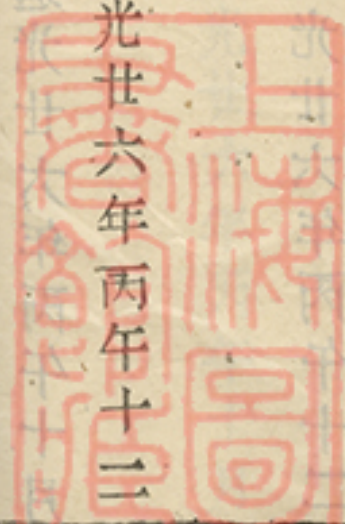 光廿六年丙午十二
上海圖
書館